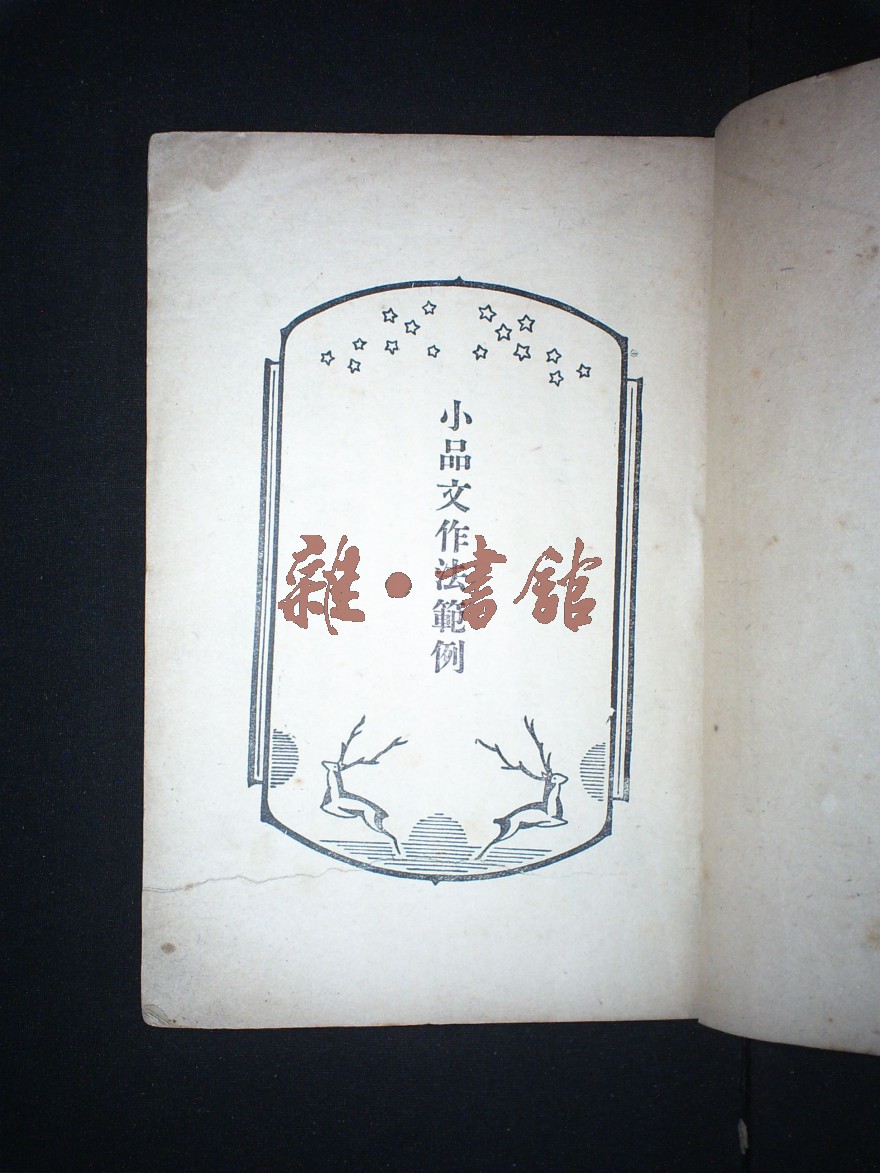 小品文作法範例
雜·書館